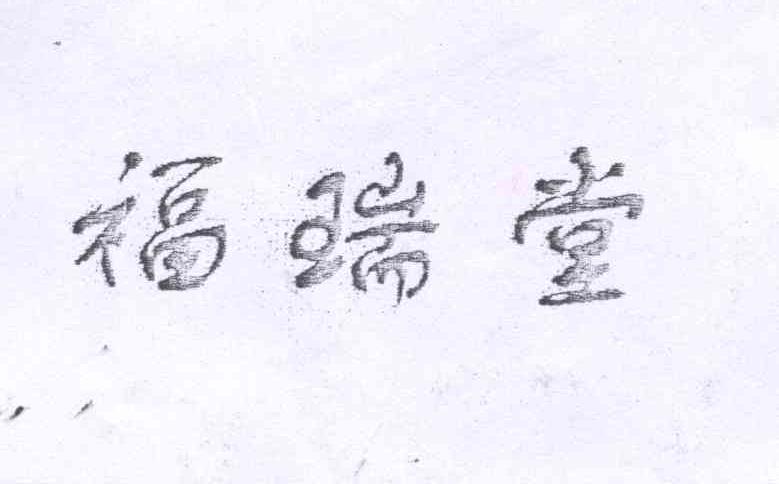 福瑞堂